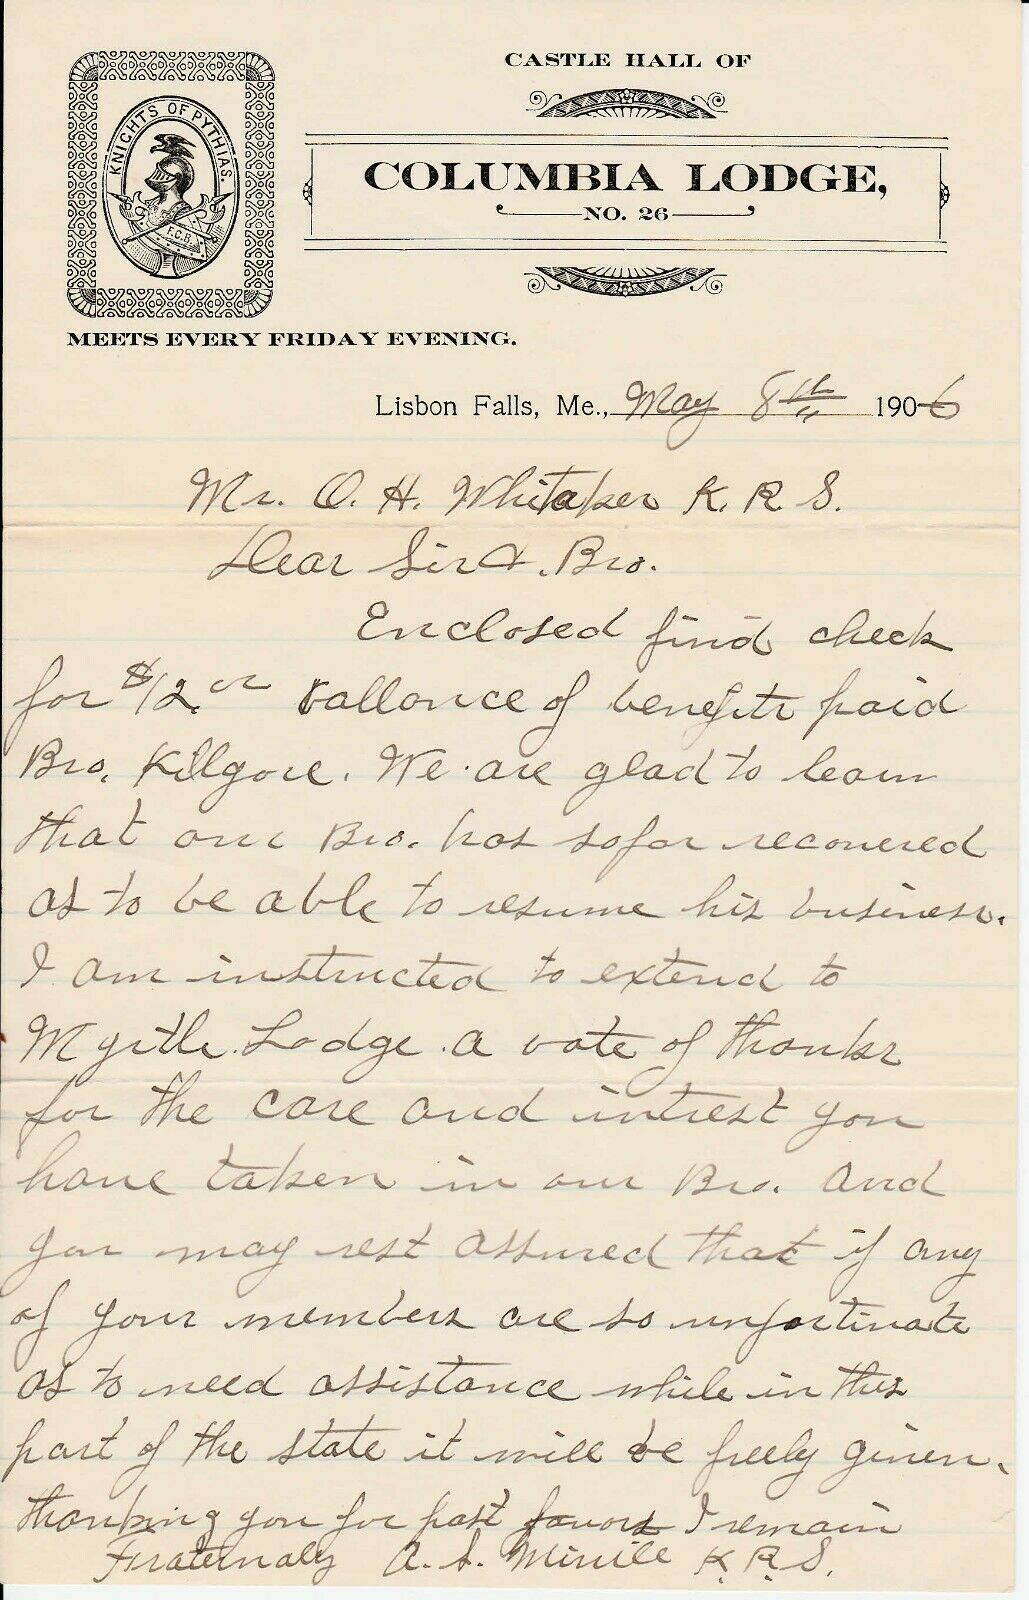 CASTLE HALL OF
KNIGHTS OF PYTHIAS.
F.C.B.
COLUMBIA LODGE,
NO. 26
MEETS EVERY FRIDAY EVENING.
Lisbon Falls, Me., May 8th 1906
Mr. O. H. Whitaker K. R. S.
Dear Sir & Bro.
Enclosed find check
for $12. ballance of benefits paid
Bro. Kilgore. We are glad to learn
that our Bro. has sofar recovered
as to be able to resume his business.
I am instructed to extend to
Myrtle Lodge a vote of thanks
for the care and intrest you
have taken in our Bro. And
you may rest assured that if any
of your members are so unfortinate
as to need assistance while in this
part of the state it will be freely given.
thanking you for past favors I remain
Fraternaly A. S. K. R. S.